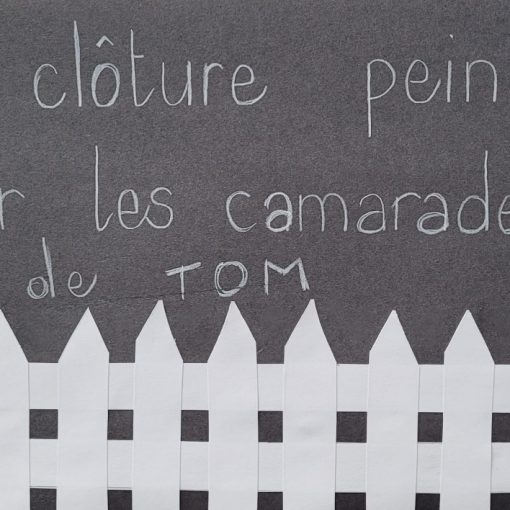 clôture pein
r les camarade
de TOM